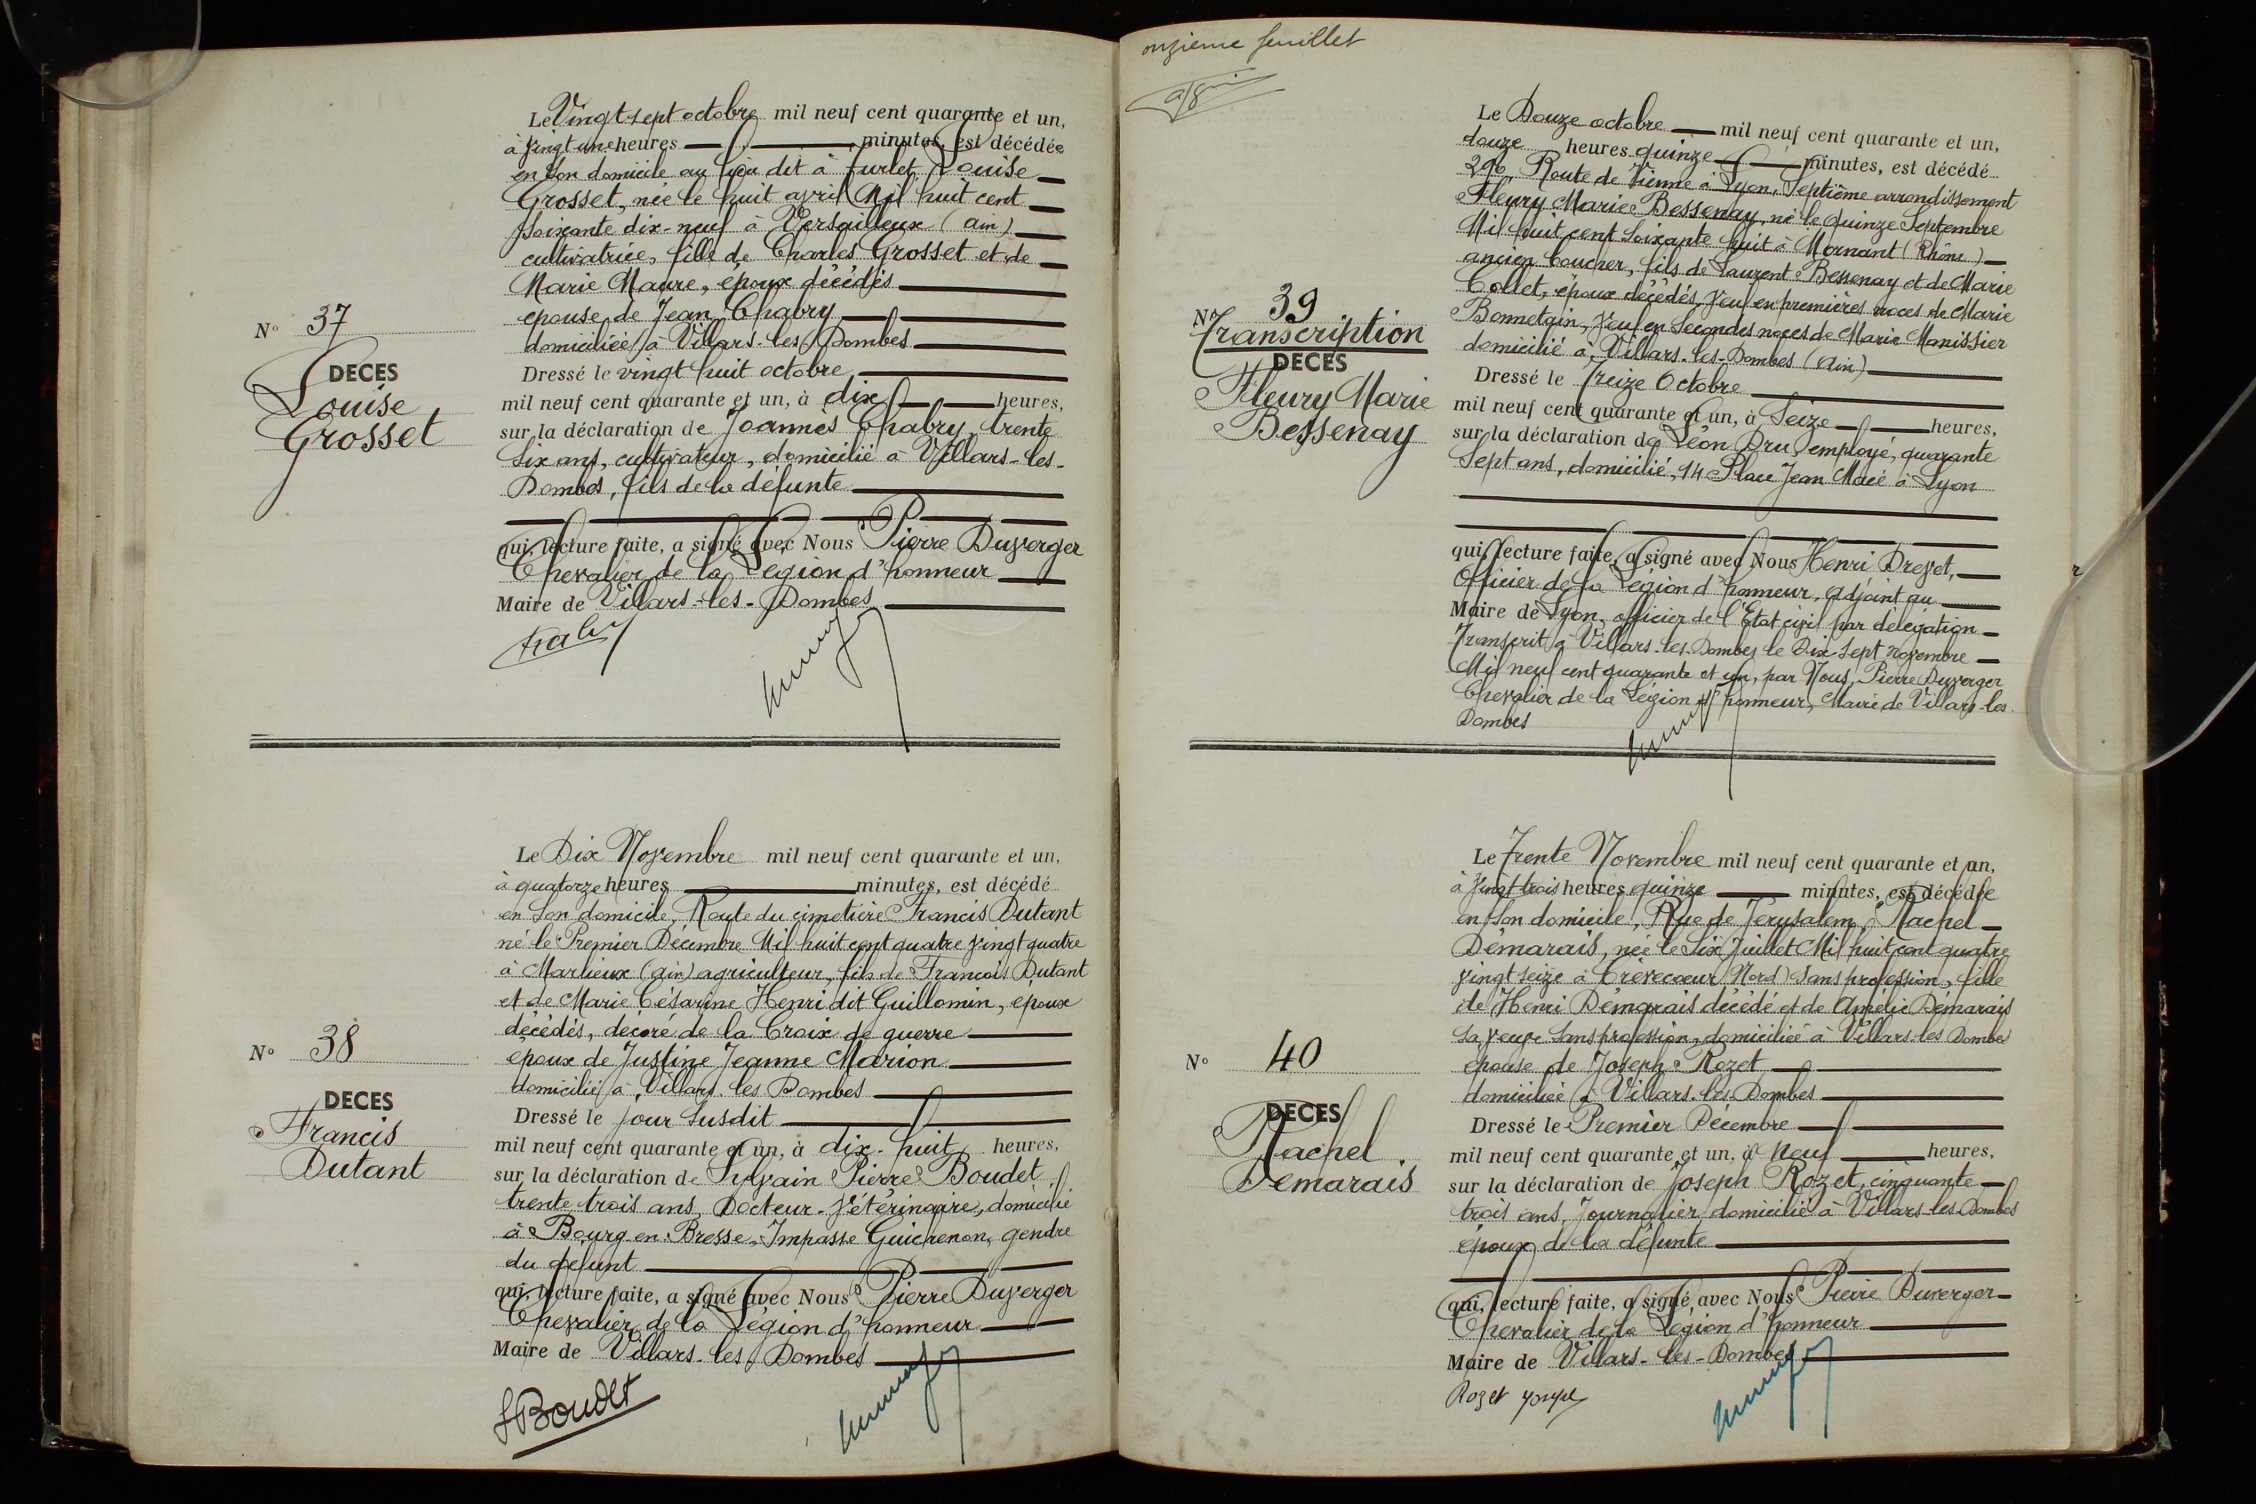 N° 37
DECES
Louise
Grosset
Le Vingt sept octobre mil neuf cent quarante et un,
à vingt une heures minutes, est décédée
en son domicile au lieu dit à Furlet, Louise
Grosset, née le huit avril Mil huit cent
soixante dix-neuf à Versailleux (ain)
cultivatrice, fille de Charles Grosset et de
Marie Maure, époux décédés
épouse de Jean Chabry
domiciliée à Villars-les-Dombes
Dressé le vingt huit octobre
mil neuf cent quarante et un, à dix heures,
sur la déclaration de Joannès Chabry, trente
six ans, cultivateur, domicilié à Villars-les-
Dombes, fils de la défunte
qui, lecture faite, a signé avec Nous Pierre Duverger
Chevalier de la Légion d'honneur
Maire de Villars-les-Dombes
N° 38
DECES
Francis
Dutant
Le Dix Novembre mil neuf cent quarante et un,
à quatorze heures minutes, est décédé
en son domicile, Route du cimetière Francis Dutant
né le Premier Décembre Mil huit cent quatre vingt quatre
à Marlieux (ain) agriculteur, fils de François Dutant
et de Marie Césarine Henri dit Guillomin, époux
décédés, décoré de la Croix de guerre
époux de Justine Jeanne Marion
domicilié à Villars-les Dombes
Dressé le jour susdit
mil neuf cent quarante et un, à dix-huit heures,
sur la déclaration de Sylvain Pierre Boudet
trente trois ans, Docteur-Vétérinaire, domicilié
à Bourg-en-Bresse, Impasse Guichenon, gendre
du défunt
qui, lecture faite, a signé avec Nous Pierre Duverger
Chevalier de la Légion d'honneur
Maire de Villars-les Dombes
SBoudet
onzième feuillet
N° 39
Transcription
DECES
Fleury Marie
Bessenay
Le Douze octobre mil neuf cent quarante et un,
douze heures quinze minutes, est décédé
296, Route de Vienne à Lyon, Septième arrondissement
Fleury Marie Bessenay, né le quinze Septembre
Mil huit cent soixante huit à Mornant (Rhône)
ancien boucher, fils de Laurent Bessenay et de Marie
Collet, époux décédés, veuf en premières noces de Marie
Bonnetain, veuf en secondes noces de Marie Manissier
domicilié à Villars-les-Dombes (Ain)
Dressé le treize Octobre
mil neuf cent quarante et un, à Seize heures,
sur la déclaration de Léon Dru, employé, quarante
sept ans, domicilié, 14 Place Jean Macé à Lyon
qui, lecture faite, a signé avec Nous Henri Drevet,
Officier de la Légion d'honneur, adjoint au
Maire de Lyon, officier de l'Etat civil par délégation
Transcrit à Villars-les-Dombes le Dix Sept novembre
Mil neuf cent quarante et un, par Nous, Pierre Duverger
Chevalier de la Légion d'honneur, Maire de Villars-les
Dombes
N° 40
DECES
Rachel
Demarais
Le Trente Novembre mil neuf cent quarante et un,
à vingt trois heures quinze minutes, est décédée
en son domicile, Rue de Jérusalem, Rachel
Démarais, née le Six Juillet Mil huit cent quatre
vingt seize à Crèvecoeur (Nord) sans profession, fille
de Henri Démarais décédé et de Amélie Démarais
sa veuve sans profession, domiciliée à Villars-les Dombes
épouse de Joseph Rozet
domiciliée à Villars-les Dombes
Dressé le Premier Décembre
mil neuf cent quarante et un, à Neuf heures,
sur la déclaration de Joseph Rozet, cinquante
trois ans, Journalier domicilié à Villars-les-Dombes
époux de la défunte
qui, lecture faite, a signé avec Nous Pierre Duverger
Chevalier de la Légion d'honneur
Maire de Villars-les-Dombes
Rozet